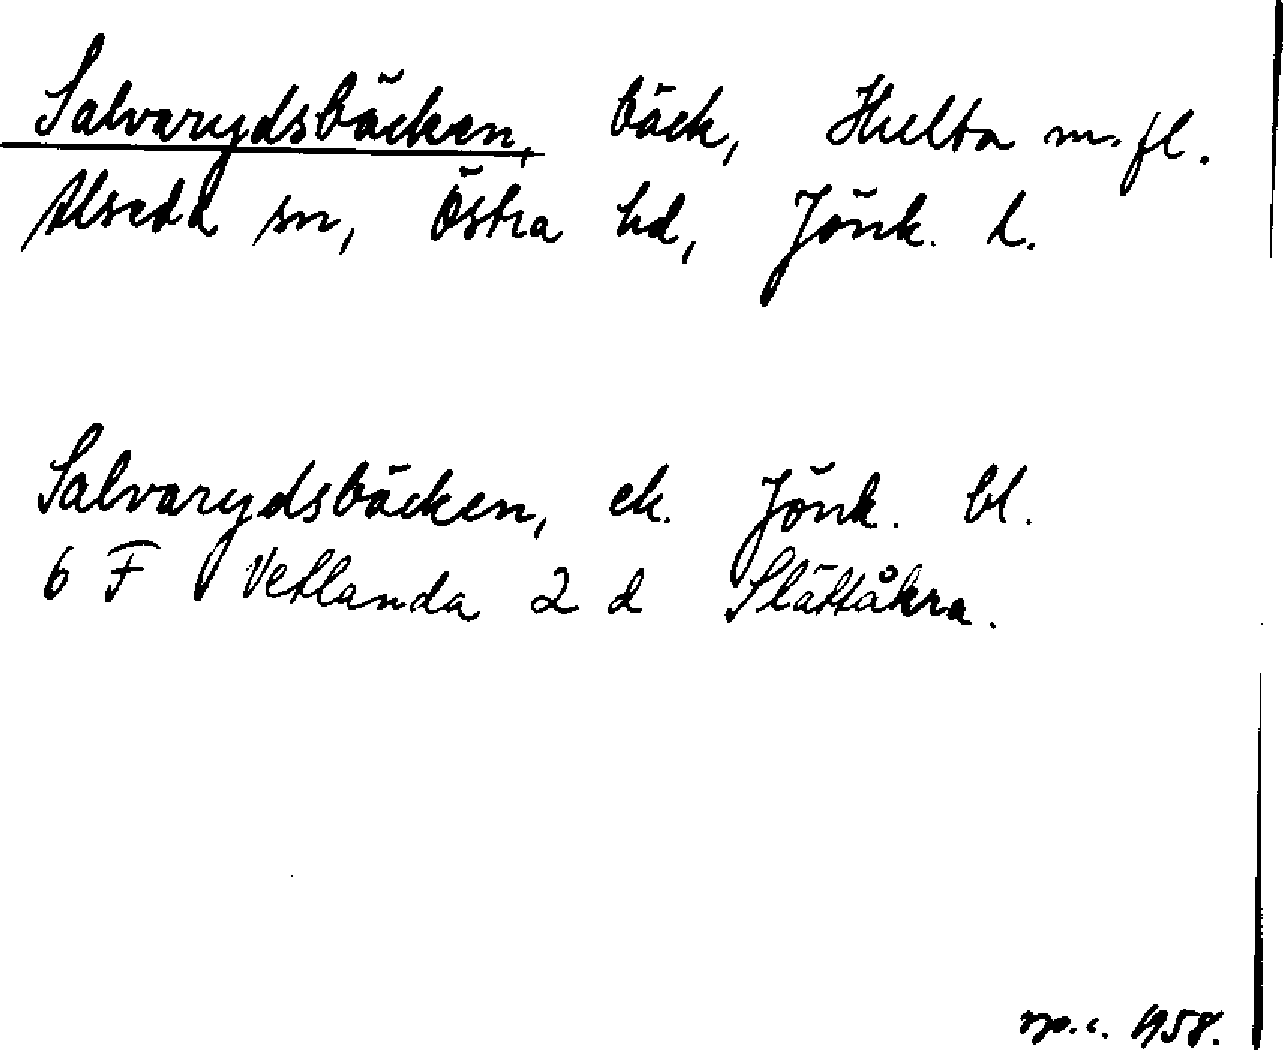 Salvarydsbäcken, bäck, Hulta m. fl.
Alseda sn, Östra hd, Jönk. l.
Salvarydsbäcken, ek. Jönk. bl.
6 F Vetlanda 2 d Slättåkra.
1958.